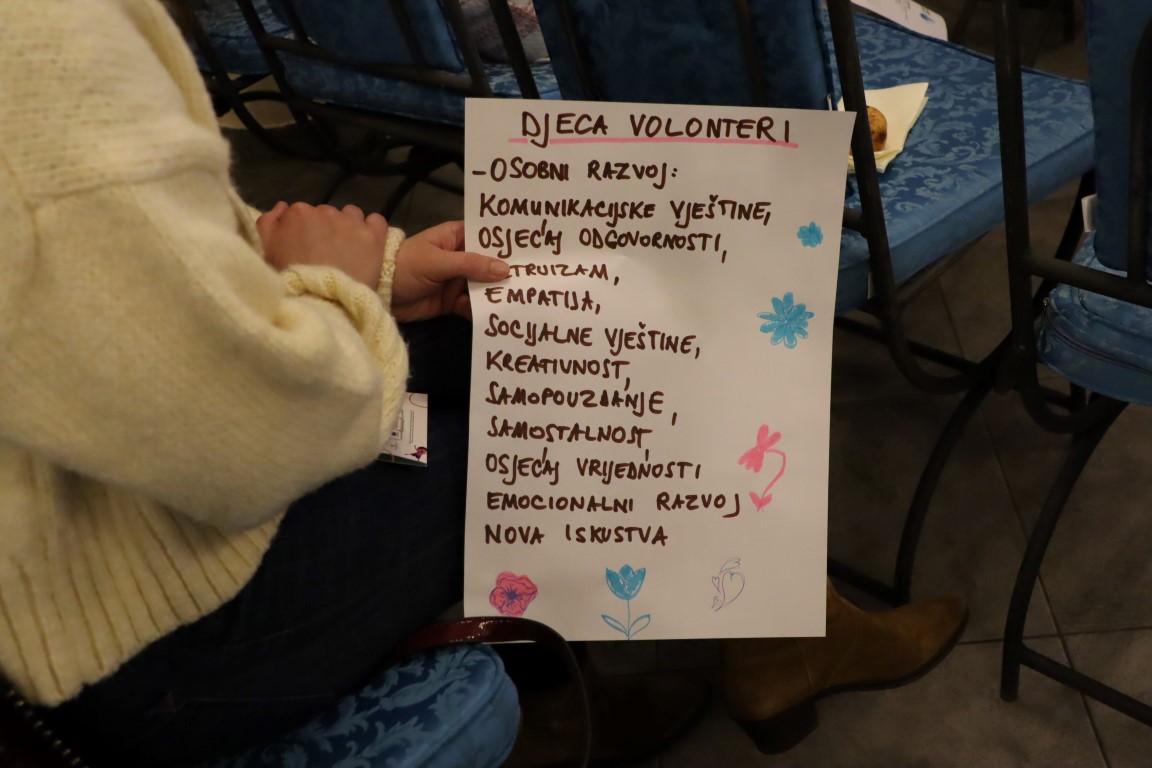 DJECA VOLONTERI
-OSOBNI RAZVOJ:
KOMUNIKACIJSKE VJEŠTINE,
OSJEĆAJ ODGOVORNOSTI,
EMPATIJA,
SOCIJALNE VJEŠTINE,
KREATIVNOST,
SAMOPOUZDANJE,
SAMOSTALNOST,
OSJEĆAJ VRIJEDNOSTI
EMOCIONALNI RAZVOJ
NOVA ISKUSTVA